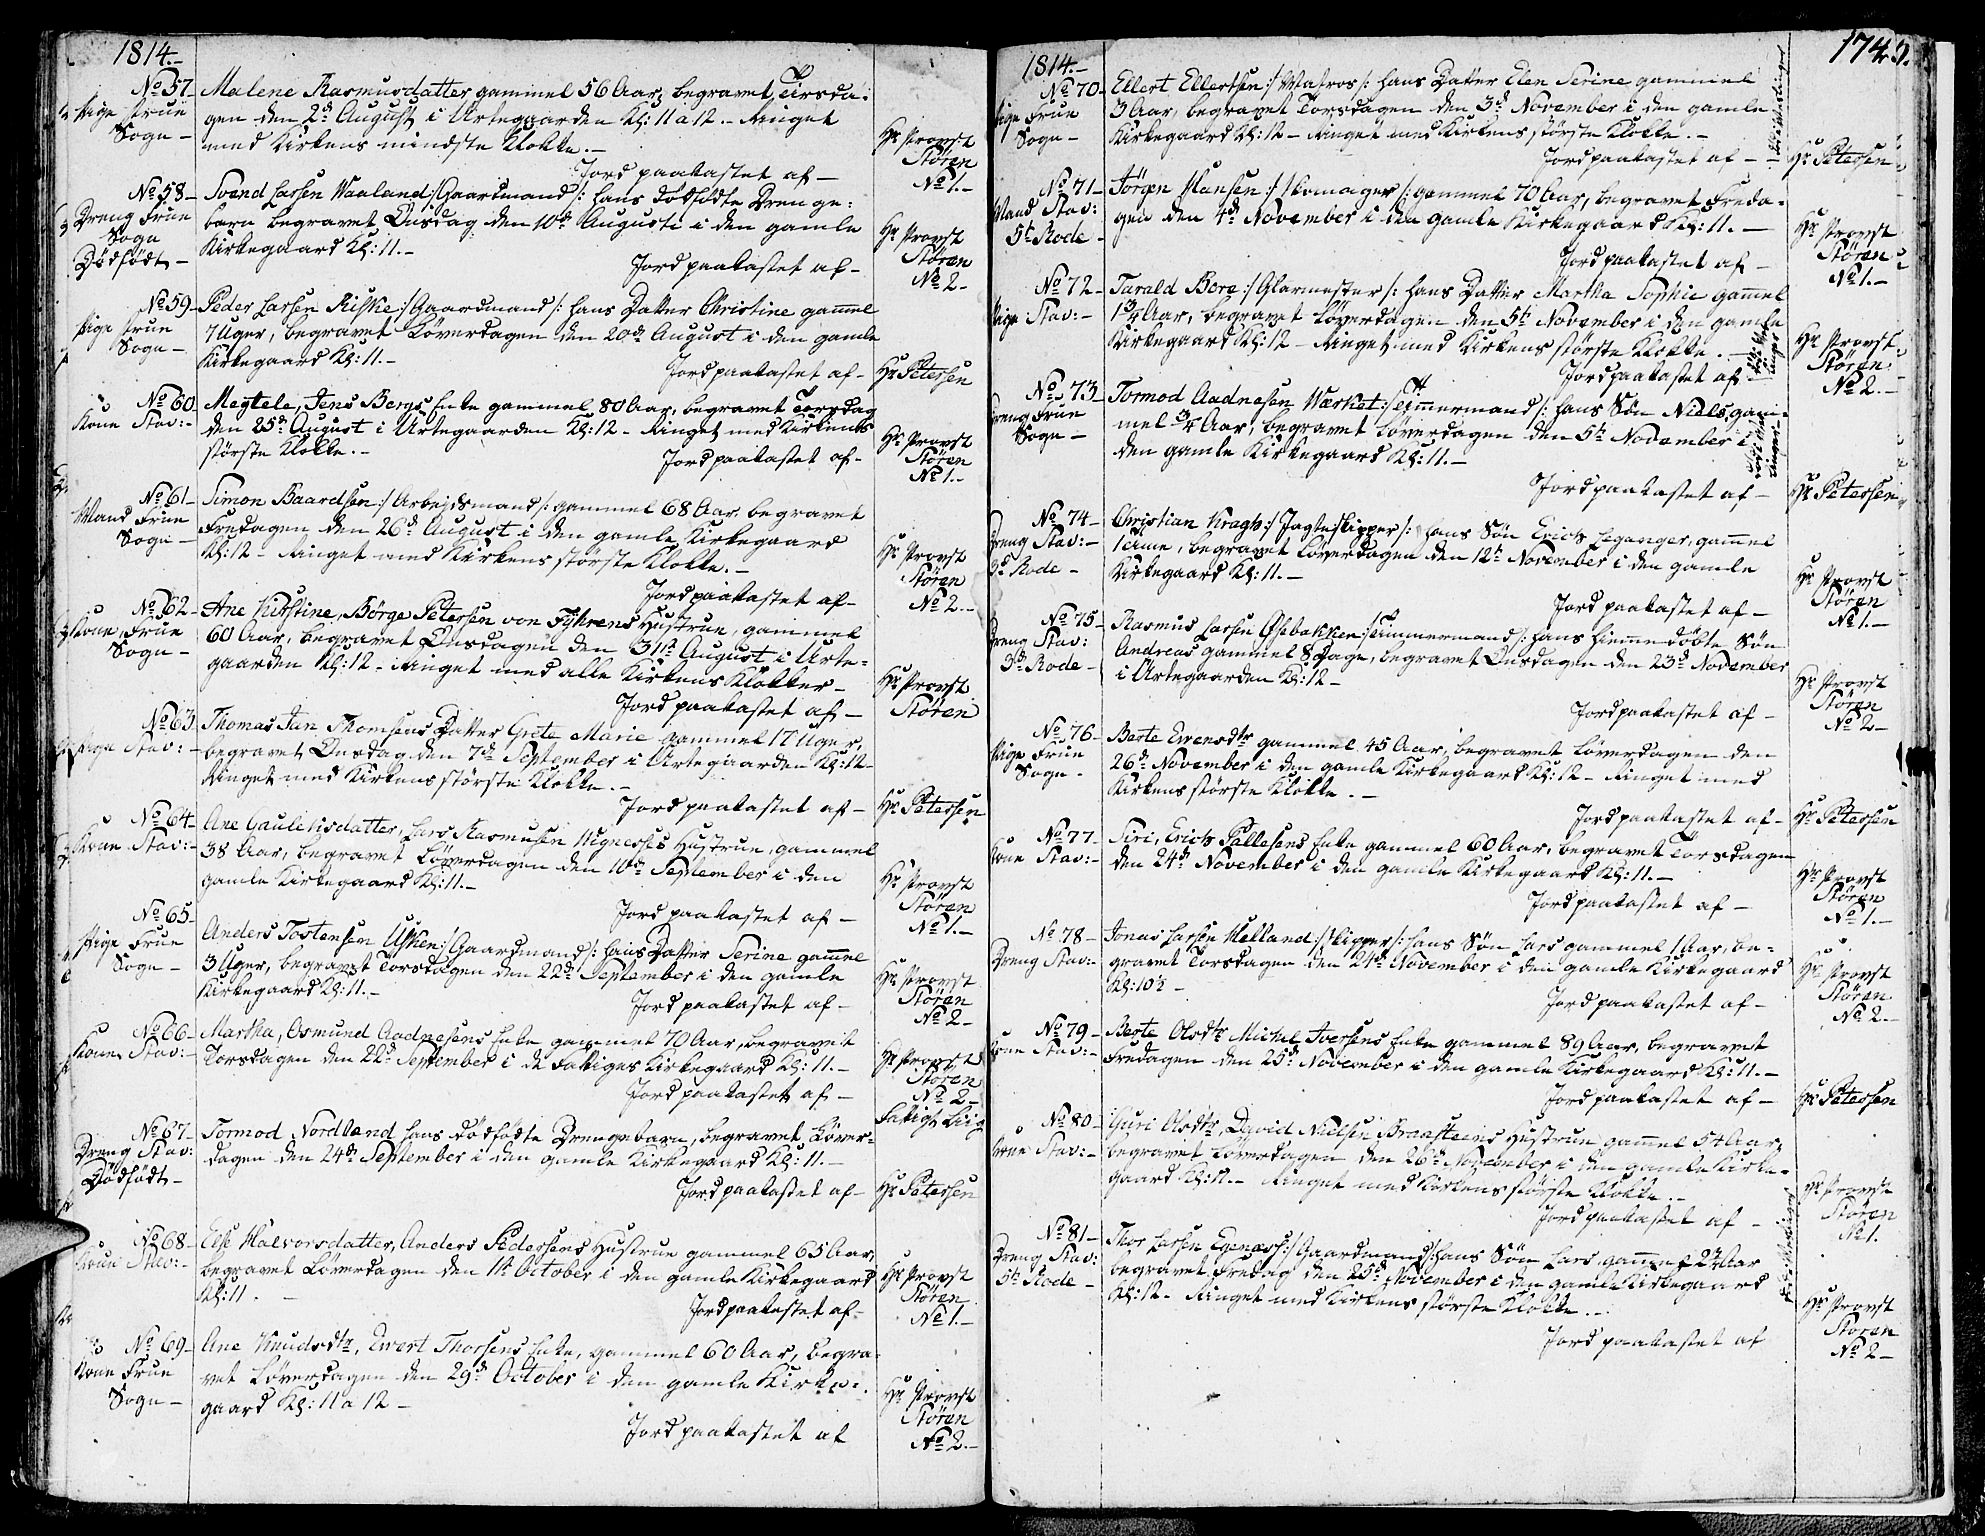 1814.-
No 57
Pige Frue
Sogn -
Malene Rasmusdatter gammel 56 Aar, begravet Tirsda-
gen den 2d August i Urtegaarden Kl: 11 a 12. - Ringet
med Kirkens mindste Klokke. -
Jord paakastet af -
Hr Provst
Støren
No 1.-
No 58 -
Dreng Frue
Sogn
Dødfødt -
Svend Larsen Waaland :/ Gaardmand /: hans dødfødte Drenge-
barn begravet Onsdag den 10de Augusti i den gamle
Kirkegaard Kl: 11.-
Jord paakastet af -
Hr Provst
Støren
No 2-
No 59 -
Pige Frue
Sogn -
Peder Larsen Riske :/ Gaardmand /: hans Datter Christine gam̄el
7 Uger, begravet Løverdagen den 20de August i den gamle
Kirkegaard Kl: 11.-
Jord paakastet af -
Hr Petersen
No 60
Kone Stav:-
Megtele, Jens Bergs Enke gammel 80 Aar, begravet Torsdag
den 25de August i Urtegaarden Kl: 12 - Ringet med Kirkens
største Klokke. -
Jord paakastet af -
Hr Provst
Støren
No 1.-
No 61 -
Mand Frue
Sogn -
Simon Baardsen :/ Arbejdsmand /: gammel 68 Aar begravet
Fredagen den 26de August i den gamle Kirkegaard
Kl: 12 - Ringet med Kirkens største Klokke. -
Jord paakastet af -
Hr Provst
Støren
No 2.-
No 62 -
Kone, Frue
Sogn -
Ane Kirstine, Börge Petersen von Fyhrens Hustrue, gammel
60 Aar, begravet Onsdagen den 31te August i Urte-
gaarden Kl: 12 - Ringet med alle Kirkens Klokker -
Jord paakastet af -
Hr Provst
Støren
No 63
Pige Stav: -
Thomas Jan Thomsens Datter Grete Marie gammel 17 Uger,
begravet Onsdag den 7de September i Urtegaarden Kl: 12 -
Ringet med Kirkens største Klokke. -
Jord paakastet af -
Hr Petersen
No 64 -
Kone Stav: -
Ane Gauleksdatter, Lars Rasmusen Wignesses Hustrue, gammel
38 Aar, begravet Løverdagen den 10de September i den
gamle Kirkegaard Kl: 11.-
Jord paakastet af -
Hr Provst
Støren
No 1.-
No 65 -
Pige Frue
Sogn -
Anders Tostensen Usken :/ Gaardmand /: hans Datter Serine gam̄el
3 Uger, begravet Torsdagen den 22de September i den gamle
Kirkegaard Kl: 11. -
Jord paakastet af -
Hr Provst
Støren
No 2-
No 66 -
Kone Stav: -
Martha, Osmund Aadnesens Enke gammel 70 Aar, begravet
Torsdagen den 22de September i de Fattiges Kirkegaard Kl: 11. -
Jord paakastet af -
Hr Provst
Støren
No 2-
Fattigt Liig
No 67 -
Dreng Stav:
Dødfødt -
Tormod Nordland hans dødfødte Drengebarn, begravet Løver-
dagen den 24de September i den gamle Kirkegaard Kl: 11. -
Jord paakastet af -
Hr Petersen
No 68 -
Kone Stav: -
Else Halvorsdatter, Anders Pedersens Hustrue gammel 65 Aar,
begravet Løverdagen den 1te October i den gamle Kirkegaard
Kl: 11. -
Jord paakastet af -
Hr Provst
Støren
No 1.-
No 69 -
Kone Frue
Sogn -
Ane Knudsdtr, Ewert Thorsens Enke, gammel 60 Aar, begra-
vet Løverdagen den 29de October i den gamle Kirke-
gaard Kl: 11 a 12 -
Jord paakastet af
Hr Provst
Støren
No 2.-
1814.-
174
No 70 -
Pige Frue
Sogn -
Ellert Ellertsen :/ Matros /: hans Datter Elen Serine gammel
3 Aar, begravet Torsdagen den 3de November i den gamle
Kirkegaard Kl: 12 - Ringet med Kirkens største Klokke. -
Jord paakastet af -
Hr Petersen
No 71 -
Mand Stav:
5te Rode -
Jörgen Hansen :/ Skomager /: gammel 70 Aar, begravet Freda-
gen den 4de November i den gamle Kirkegaard Kl: 11. -
Jord paakastet af -
Hr Provst
Støren
No 1.-
No 72 -
Pige Stav: -
Tarald Bore :/ Glarmester /: hans Datter Martha Sophie gam̄el
1 3/4 Aar, begravet Løverdagen den 5te November i den gamle
Kirkegaard Kl: 12 - Ringet med Kirkens største Klokke. -
Jord paakastet af -
Hr Provst
Støren
No 2.-
No 73
Dreng Frue
Sogn -
Tormod Aadnesen Wærket :/ Tim̄ermand /: hans Søn Niels, gam-
mel 3/4 Aar, begravet Løverdagen den 5te November i
den gamle Kirkegaard Kl: 11. -
Jord paakastet af -
Hr Petersen
No 74 -
Dreng Stav: -
Rode -
Christian Kragh :/ Jagteskipper /: hans Søn Erich Leganger, gam̄el
1 Time, begravet Løverdagen den 12te November i den gamle
Kirkegaard Kl: 11. -
Jord paakastet af -
Hr Provst
Støren
No 1.-
No 75 -
Dreng Stav:
3de Rode -
Rasmus Larsen Øsebakken :/ Timmermand /: hans hiemmedöbte Søn
Andreas gammel 8 Dage, begravet Onsdagen den 23de November
i Urtegaarden Kl: 12 -
Jord paakastet af -
Hr Provst
Støren
No 2 -
No 76 -
Pige Frue
Sogn -
Berte Ewensdtr gammel 45 Aar, begravet Løverdagen den
26de November i den gamle Kirkegaard Kl: 12 - Ringet med
Kirkens største Klokke. -
Jord paakastet af -
Hr Petersen
No 77 -
Kone Stav: -
Siri, Erich Pallesens Enke gammel 60 Aar, begravet Torsdagen
den 24de November i den gamle Kirkegaard Kl: 11. -
Jord paakastet af -
Hr Provst
Støren
No 1.-
No 78 -
Dreng Stav:
Jonas Larsen Helland :/ Skipper /: hans Søn Lars gammel 1 Aar, be-
gravet Torsdagen den 24de November i den gamle Kirkegaard
Kl: 10½ -
Jord paakastet af -
Hr Provst
Støren
No 2.-
No 79 -
Kone Stav: -
Berte Olsdtr Michel Iversens Enke gammel 89 Aar, begravet
Fredagen den 25de November i den gamle Kirkegaard Kl: 11. -
Jord paakastet af -
Hr Petersen
No 80 -
Kone Stav: -
Guri Olsdtr, David Nielsen Braasteens Hustrue gam̄el 54 Aar,
begravet Løverdagen den 26de November i den gamle Kirke-
gaard Kl: 11. - Ringet med Kirkens største Klokke. -
Jord paakastet af -
Hr Provst
Støren
No 1.
No 81 -
Dreng Stav:
5te Rode -
Thor Larsen Egenæss :/ Gaardmand /: hans Søn Lars gam̄el 2½ Aar
begravet Fredag den 25de November i den gamle Kirkegaard
Kl: 12 - Ringet med Kirkens største Klokke. -
Jord paakastet af
Hr Provst
Støren
No 2 -